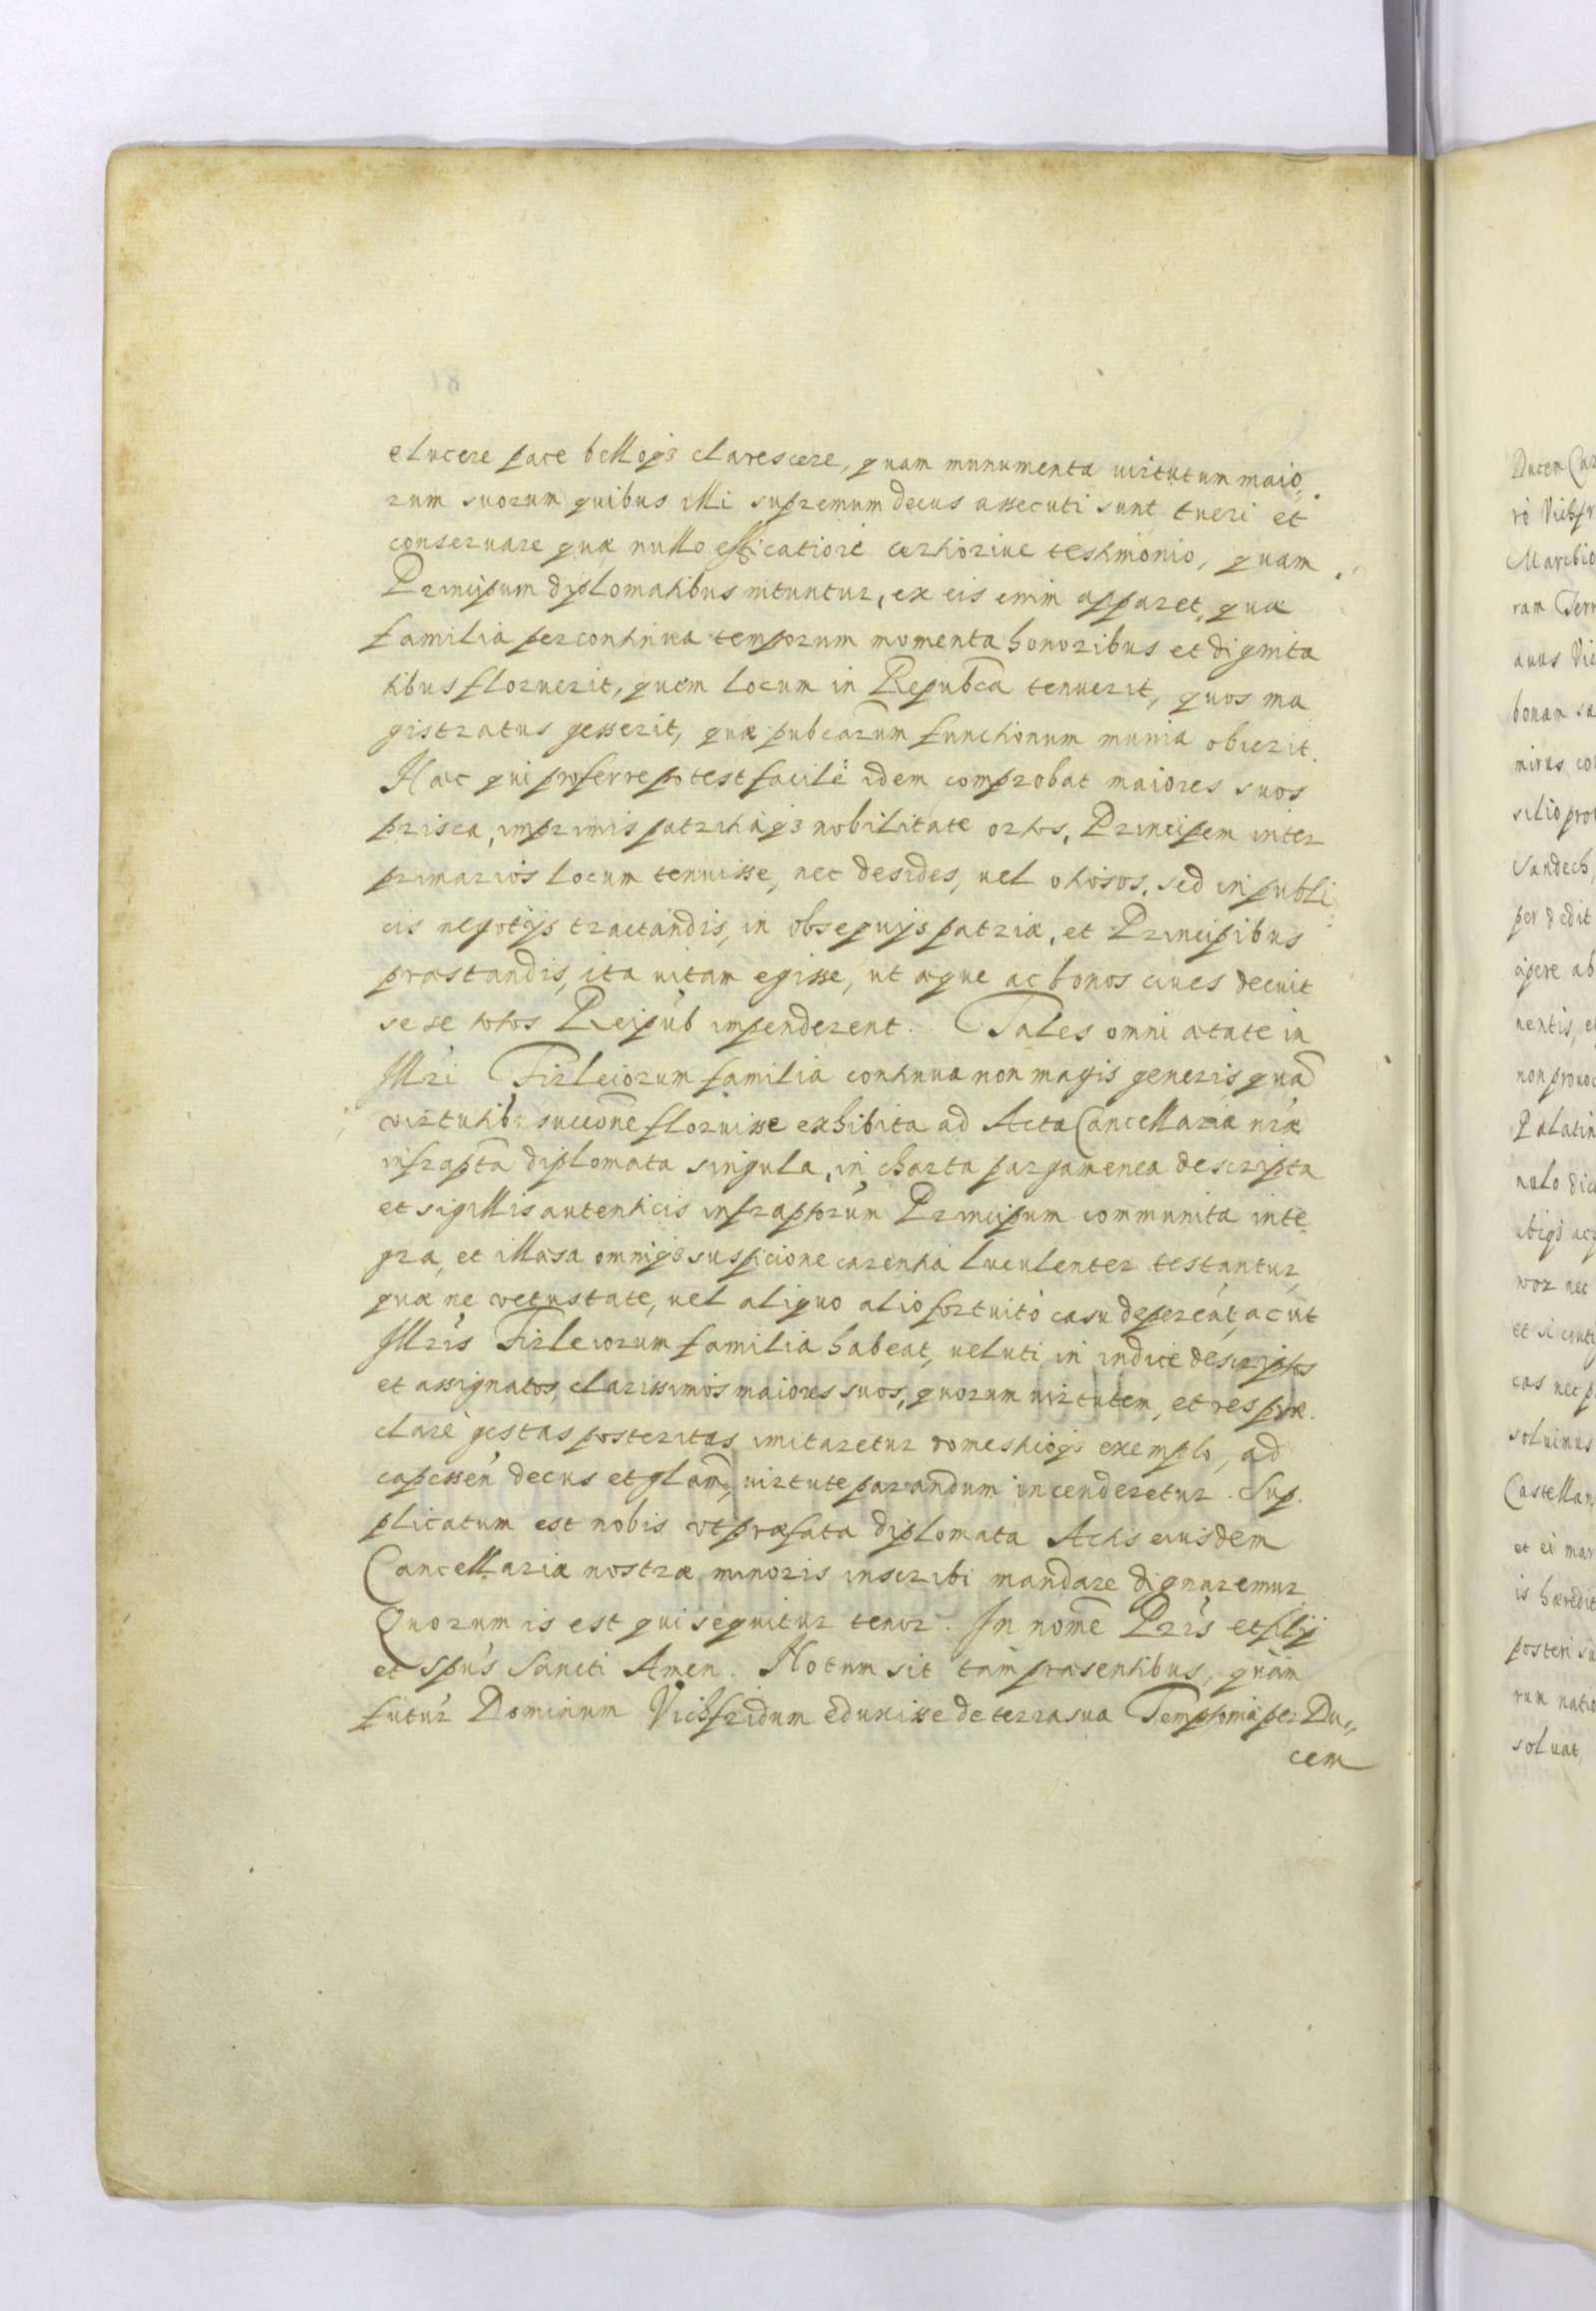 elucere pace belloq3 clarescere, quam munumenta uirtutum maio,
rum suorum quibus illi supremum decus assecuti sunt tueri et
conseruare quæ nullo efficatiorè certioriue testimonio, quam
Principum diplomatibus nituntur, ex eis enim apparet, quæ
familia per continua temporum momenta honoribus et dignita
tibus floruerit, quem locum in Republca tenuerit, quos ma
gistratus gesserit, quæ pubcarum functionum munia obierit.
Hæc qui proferre potest facilè idem comprobat maiores suos
prisca, imprimis patritiaq3 nobilitate ortos, Principem inter
primarios locum tenuisse, nec desides, uel otiosos, sed in publi
cis negotijs tractandis, in obsequijs patriæ, et Principibus
præstandis, ita uitam egisse, ut æque ac bonos ciues decuit
se se totos Reipub impenderent. Tales omni ætate in
Illri Firleiorum familia continua non magis generis qua
virtutib: succone floruisse exhibita ad Acta Cancellariæ nræ
infrapta diplomata singula, in charta pargamenea descripta
et sigillis autenticis infraptorum Principum communita inte
gra, et illæsa omniq3 suspicione carentia luculenter testantur,
quæ ne vetustate, uel aliquo alio fortuitò casu depereat, ac ut
Illris Firleiorum familia habeat, ueluti in indice descriptos
et assignatos, clarissimos maiores suos, quorum uirtutem, et res præ
clarè gestas posteritas imitaretur domesticoq3 exemplo, ad
capessen decus et glam, uirtute parandum incenderetur. Sup.
plicatum est nobis vt præfata diplomata Actis eiusdem
Cancellariæ nostræ minoris inscribi mandare dignaremur
Quorum is est qui sequitur tenor. In nome Pris et filij
et spus Sancti Amen. Notum sit tam præsentibus, quàm
futur Dominum Vichfridum eduxisse de terra sua per Du,,
cem

Ducem
rò
Marchio
ran
auus
bonam
mirus
silio
Sandech,
per dedit
apere ab
nentis, et
non prouoc
Palatin
nulo
ubiq3
nec
et si
cas nec
soluimus
Castellan
et ei
is
posteri su
rum natio
soluat,